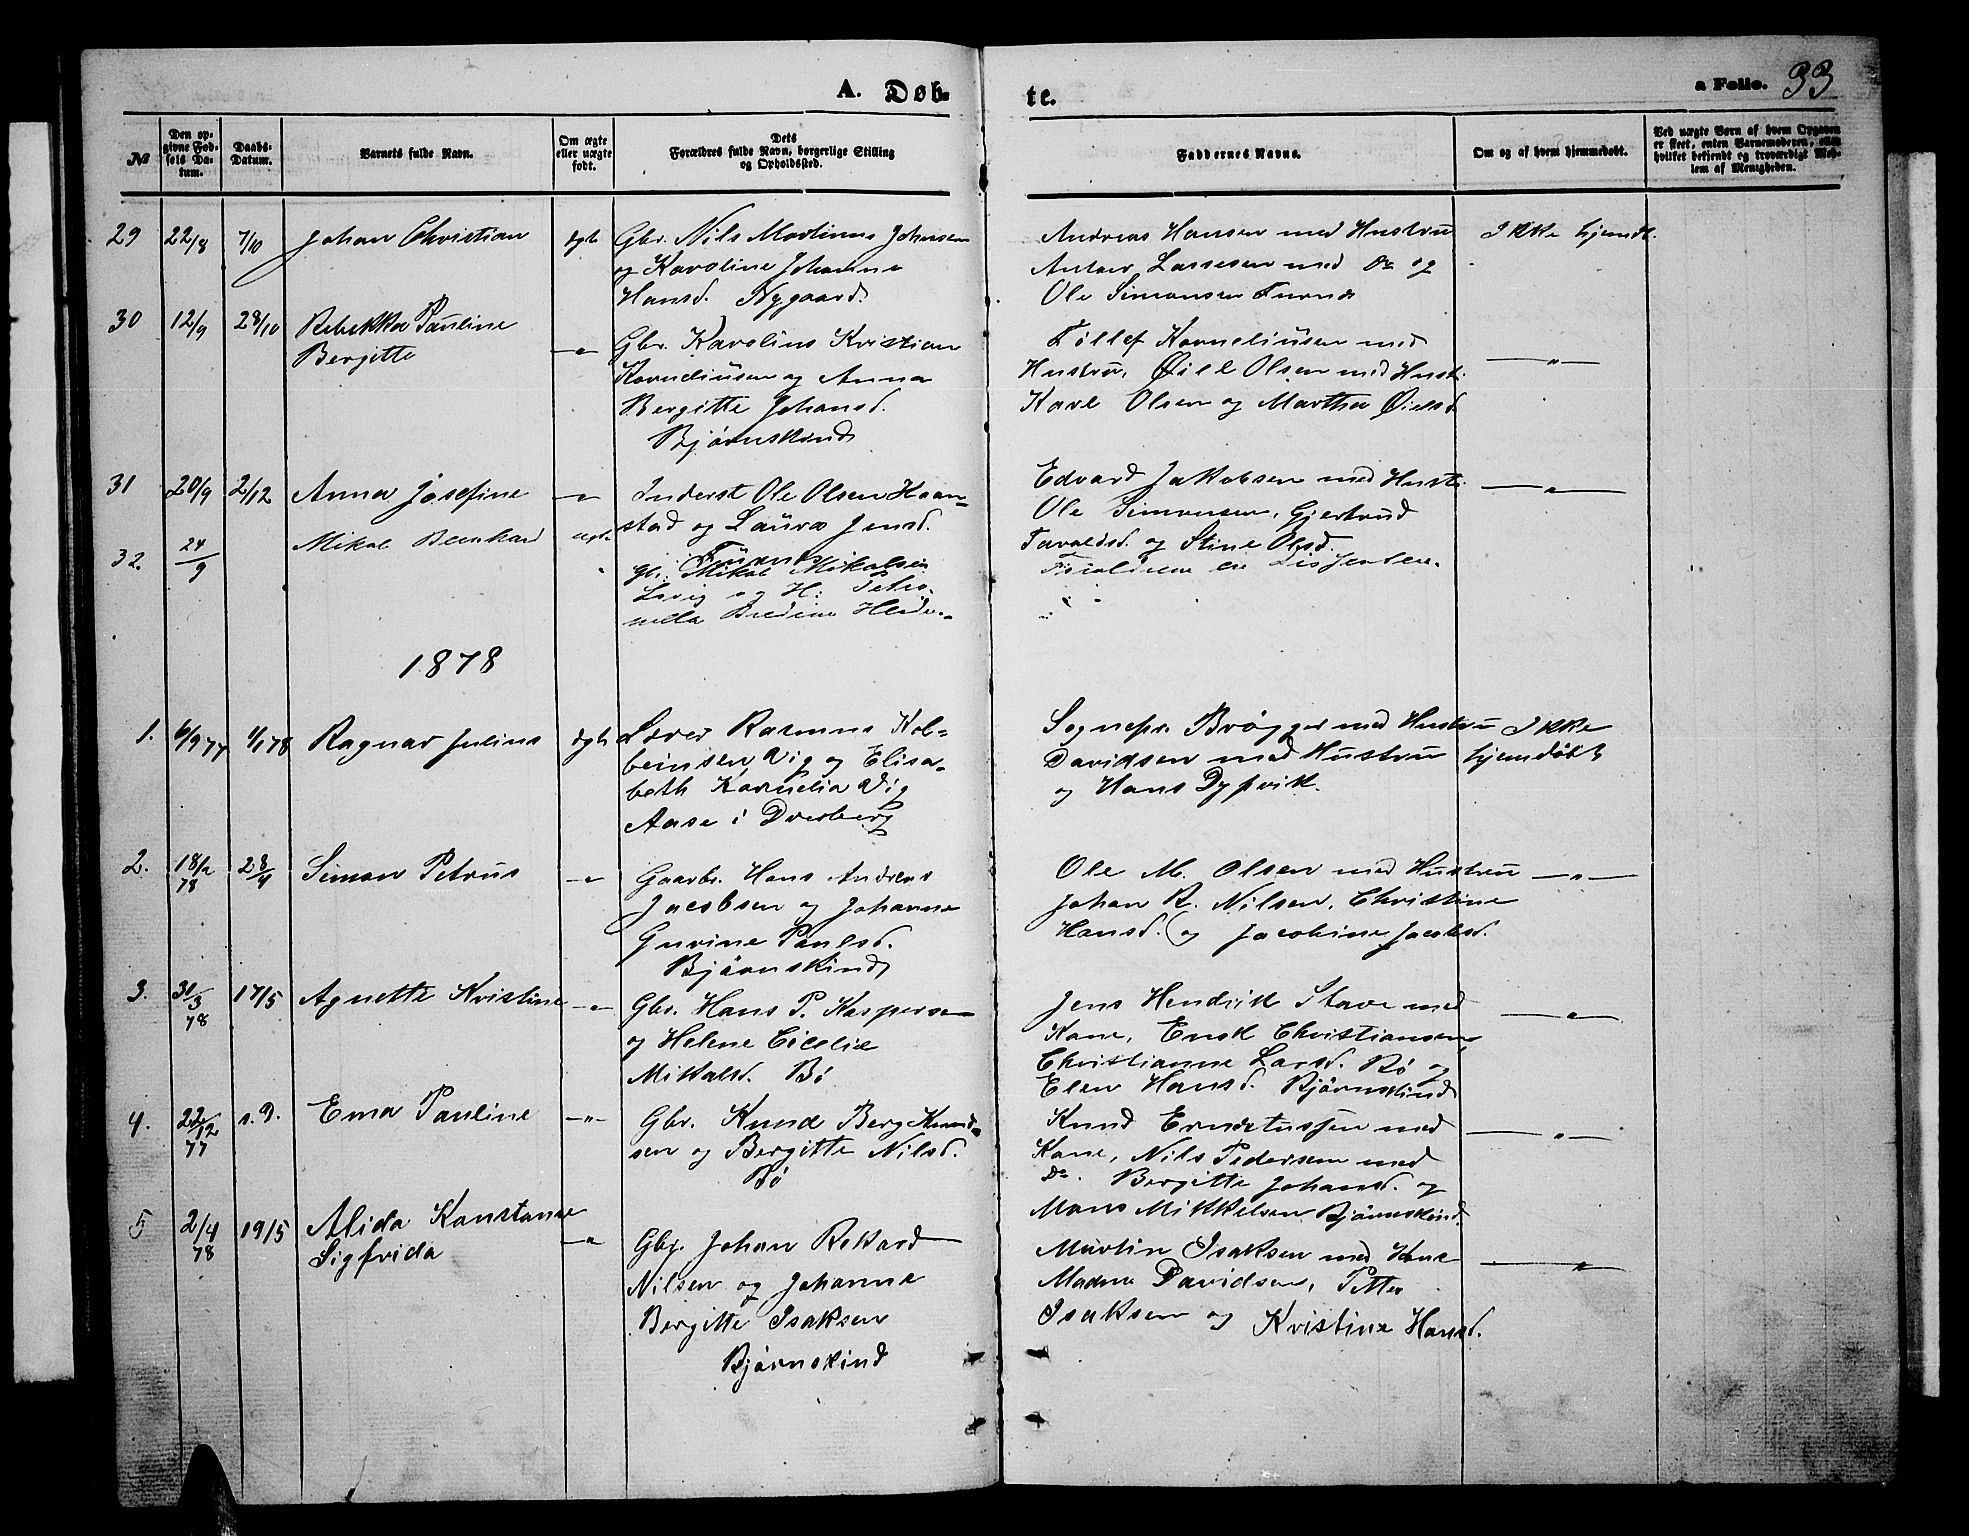 A. Døb-
te.
a Folio. 33
№
Den op-
givne Fød-
sels Da-
tum.
Daabs-
Datum.
Barnets fulde Navn.
Om ægte
eller uægte
født.
Dets
Forældres fulde Navn, borgerlige Stilling
og Opholdssted.
Faddernes Navne.
Om og af hvem hjemmedøbt.
Ved uægte Børn af hvem Opgaven
er skeet, enten Barnemoderen, eller
hvilket bekjendt og troværdigt Med-
lem af Menigheden.
29 22/8 7/10 Johan Christian ægte Gbr. Nils Martinus Johansen
og Karoline Johanna
Hansd. Nygaard.
Andreas Hansen med Hustru
Antaer Lassesen med Do og
Ole Simonsen
Ikke hjemdt.
30 12/9 28/10 Rebekka Pauline
Bergitte
—"—
Gbr. Karolius Kristian
Korneliusen og Anna
Bergitte Johansd.
Bjørnskind
Tøllef Korneliusen med
Hustru, Øiel Olsen med Hust.
Karl Olsen og Martha Øielsd.
—"—
31 20/9 2/12 Anna Josefine —"— Inderst Ole Olsen Haan-
stad og Laura Jensd.
Edvard Jakobsen med Hust.
Ole Simonsen, Gjertrud
Tavaldsd. og Stine Olsd.
—"—
32. 24/9 Mikal Bernhard ægte
Gbr. Mikal Mikalsen
og H: Petro-
nella
Forældrene ere Dissentere.
1878
1. 6/9 77 1/1 78 Ragnar Julius ægte Lærer Rasmus Kol-
beinsen Vig og Elisa-
beth Kornelia Vig
Aase i Dverberg
Sognepr. Brøgger med Hustru
Davidsen med Hustru
og Hans Dypvik.
Ikke
hjemdøbt
2. 18/2 78 28/4 Simon Petrus —"— Gaarbr. Hans Andreas
Jacobsen og Johanne
Gurine Paulsd.
Bjørnskind
Ole M. Olsen med Hustru
Johan R. Nilsen, Christine
Hansd. og Jacobine Jacobsd.
—"—
3. 31/3 78 17/5 Agnette Kristine —"— Gbr. Hans P. Kaspersen
og Helene Cicelie
Mikkalsd. Bø
Jens Hendrik Stave med
Kone, Enok Christiansen,
Christianne Larsd. Bø og
Elen Hansd. Bjørnskind
—"—
4. 22/12 77 s. D. Ema Pauline —"— Gbr. Knud Berg Knud-
sen og Bergitte Nilsd.
Bø
Knud Erndtussen med
Kone, Nils Pedersen med
Do. Bergitte Johansd. og
Mons Mikkelsen Bjørnskind.
—"—
5 2/4 78 19/5 Alida Konstanse
Sigfrida
—"—
Gbr. Johan Rikard
Nilsen og Johanna
Bergitte Isaksen
Bjørnskind
Martin Isaksen med Kone
Madme Davidsen, Petter
Isaksen og Kristine Hansd.
—"—